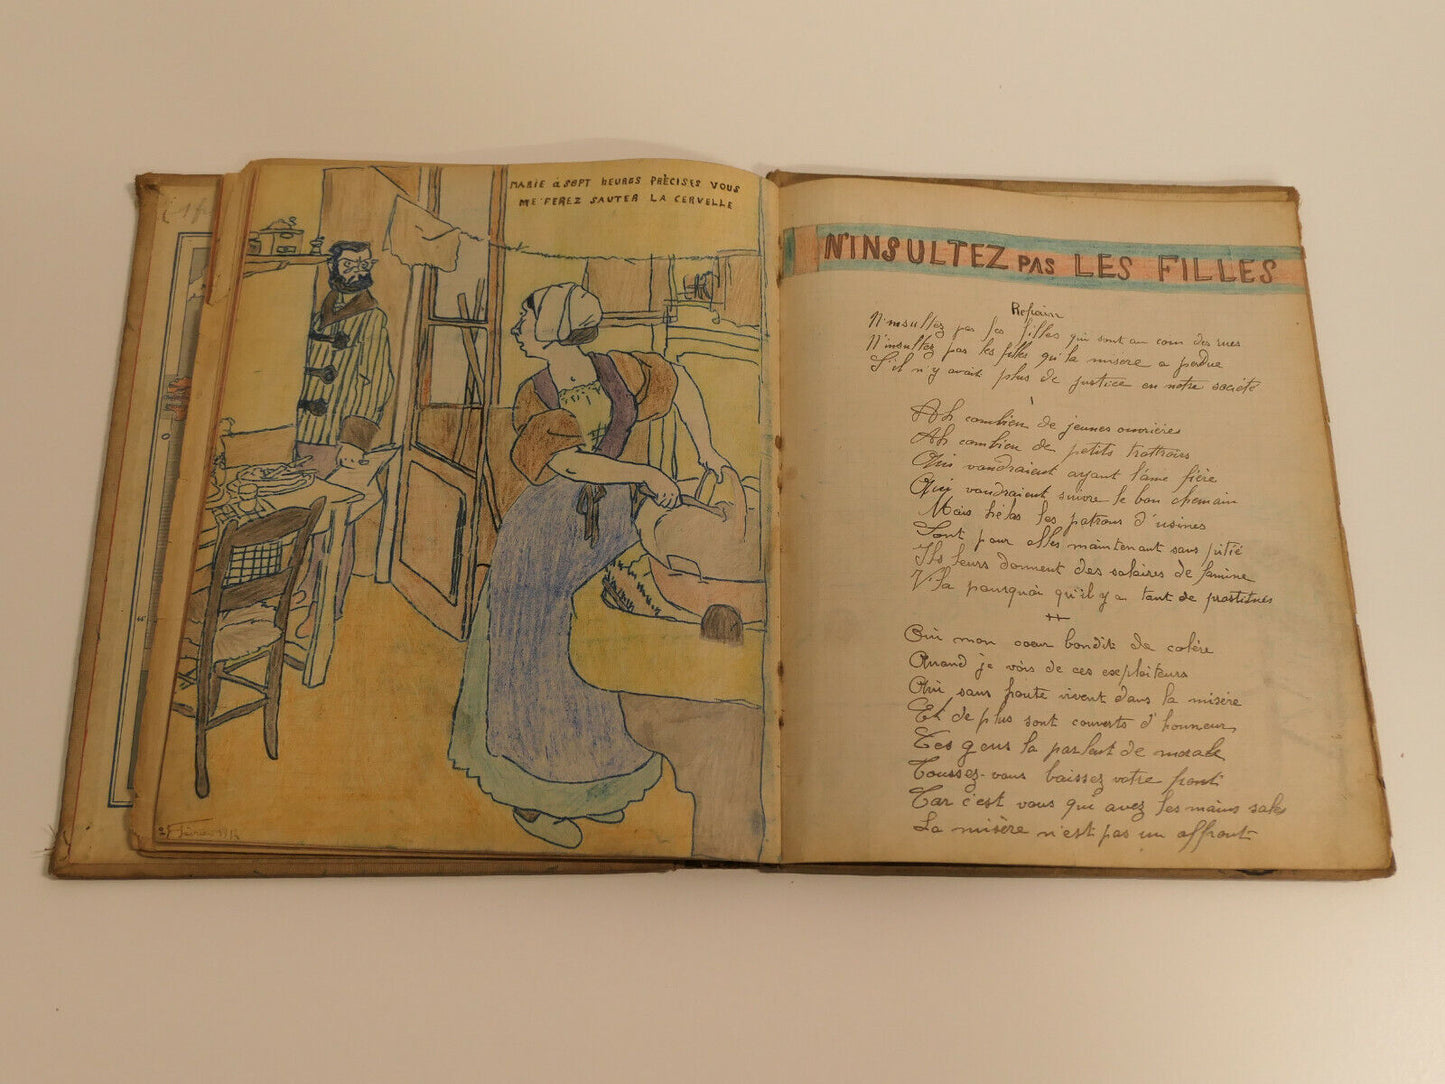 MARIE à SEPT HEURES PRÉCISES VOUS
ME FEREZ SAUTER LA CERVELLE
Février 191
N'INSULTEZ PAS LES FILLES
Refrain
N'insultez pas les filles qui sont au coin des rues
N'insultez pas les filles qu'la misère a perdue
S'il n'y avait plus de justice en notre société
1
Ah combien de jeunes ouvrières
Ah combien de petits trottins
Qui voudraient ayant l'âme fière
Qui voudraient suivre le bon chemain
Mais hélas les patrons d'usines
Sont pour elles maintenant sans pitié
Ils leurs donnent des salaires de famine
V'la pourquoi qu'il y a tant de prostitués
Oui mon coeur bondit de colère
Quand je vois de ces exploiteurs
Qui sans honte vivent dans la misère
Et de plus sont couverts d'honneur
Ces gens la parlent de morale
Taissez-vous baissez votre front
Car c'est vous qui avez les mains sales
La misère n'est pas un affront